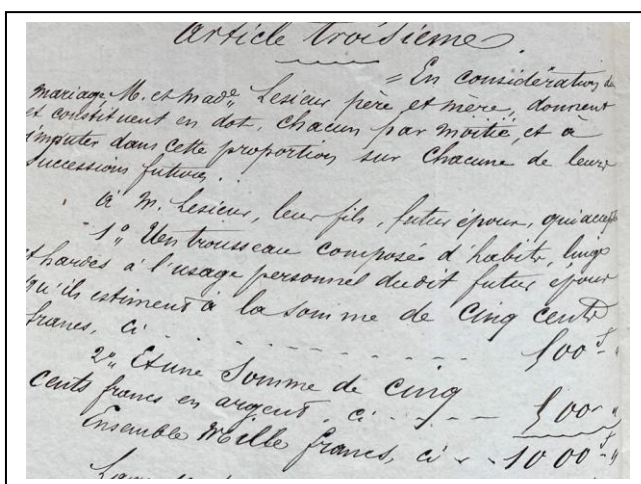 Article troisième.
= En considération du
mariage, M. et Made Lesieur père et mère, donnent
et constituent en dot, chacun par moitié, et à
imputer dans cette proportion sur chacune de leurs
successions futures.
à M. Lesieur, leur fils, futur époux, qui accepte
1o Un trousseau composé d'habits, linge
et hardes à l'usage personnel dudit futur époux
qu'ils estiment à la somme de cinq cents
francs, ci - - - - - - - - - - 500f "
2o Et une somme de cinq
cents francs en argent, ci - - - - 500 "
Ensemble Mille francs, ci - - 1000f "